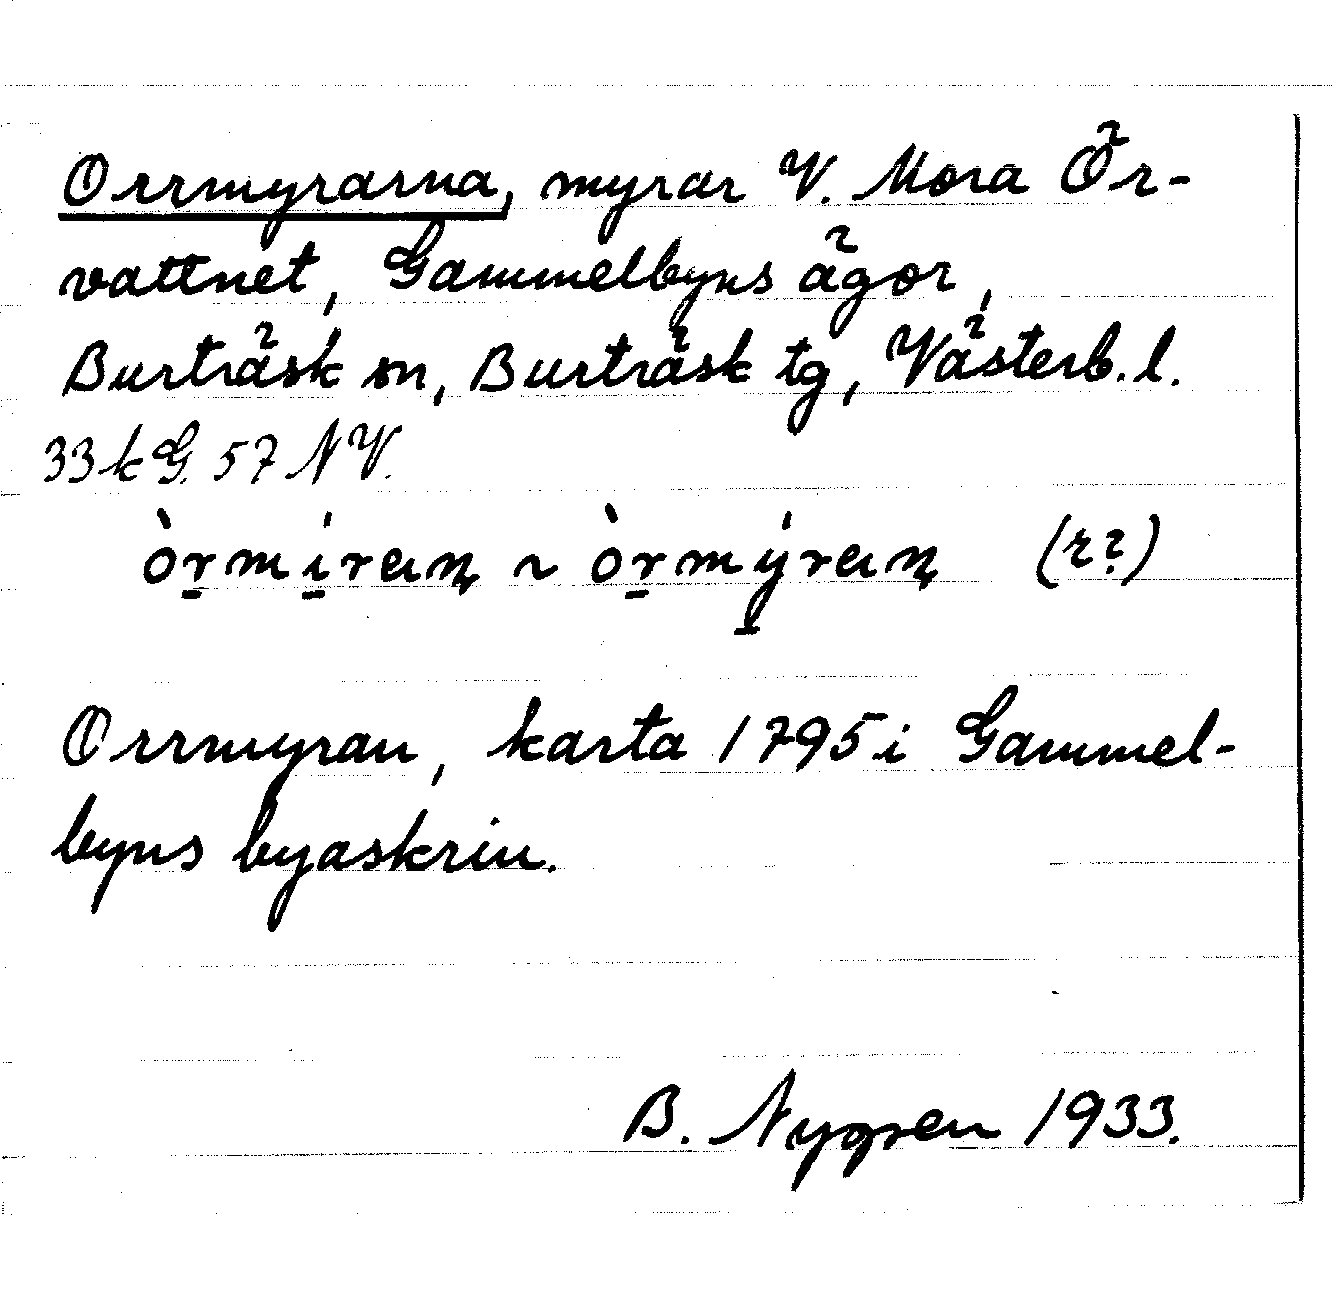 Orrmyrarna, myrar V. Mora Ör-
vattnet, Gammelbyns ägor,
Burträsk sn, Burträsk tg, Västerb. l.
33 k G. 57 N V.
òrmíraɳ ~ òrmýraɳ (r?)
Orrmyran, karta 1795 i Gammel-
byns byaskrin.
B. Nygren 1933.